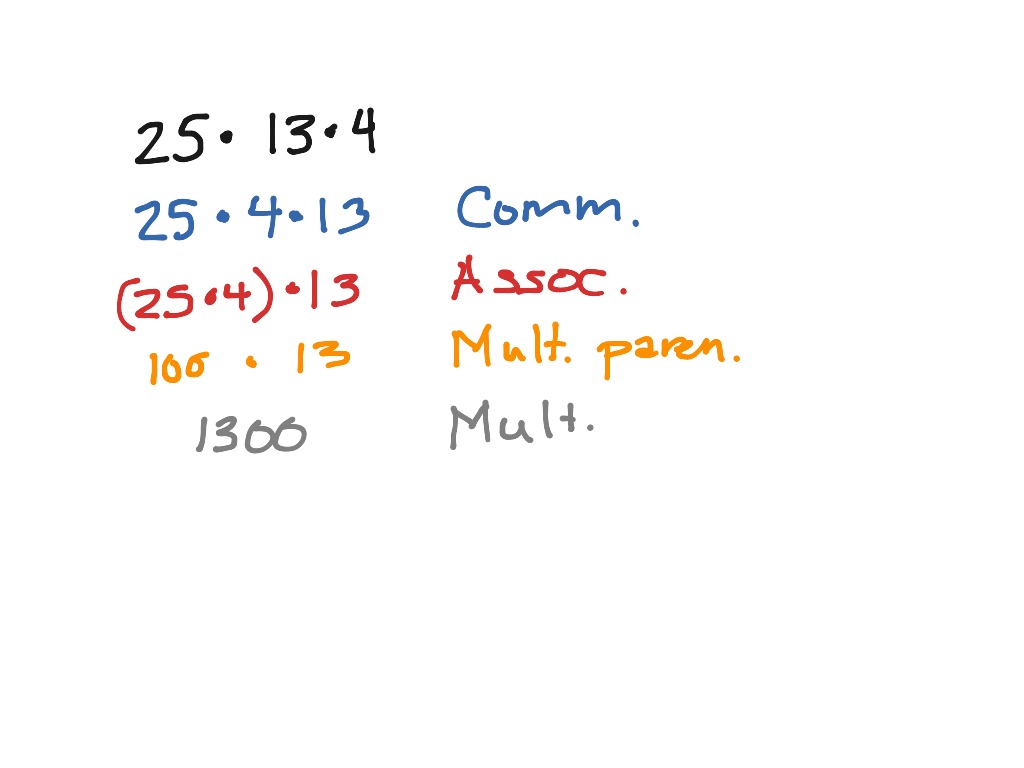 25 · 13 · 4
25 · 4 · 13 Comm.
(25 · 4) · 13 Assoc.
100 · 13 Mult. paren.
1300 Mult.